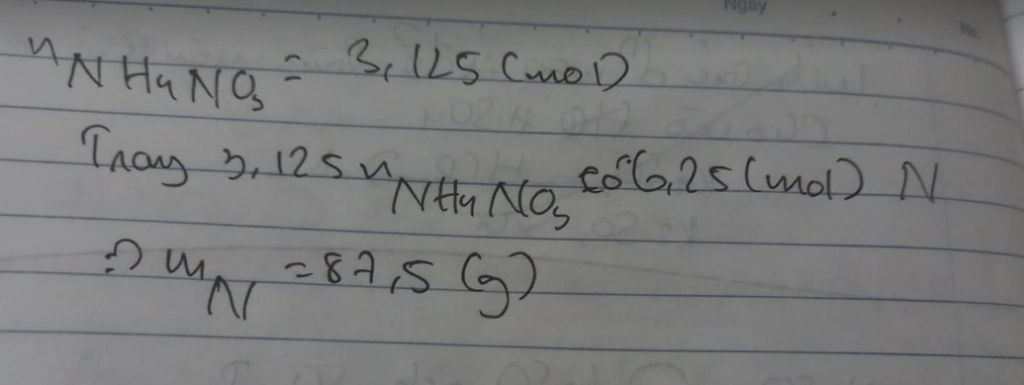 Ngày
No.
nNH4NO3 = 3,125 (mol)
Trong 3,125 nNH4NO3 có 6,25 (mol) N
=> mN = 87,5 (g)